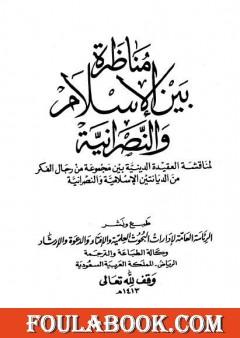 مُناظرة
بَين الإسلام
والنصرانية
لمناقشة العقيدة الدينية بين مجموعة من رجال الفكر
من الديانتين الإسلامية والنصرانية
طبع ونشر
الرئاسة العامة لإدارات البحوث العلمية والإفتاء والدعوة والإرشاد
وكالة الطباعة والترجمة
الرياض - المملكة العربية السعودية
وقف لله تعالى
١٤١٣هـ
FOULABOOK.COM